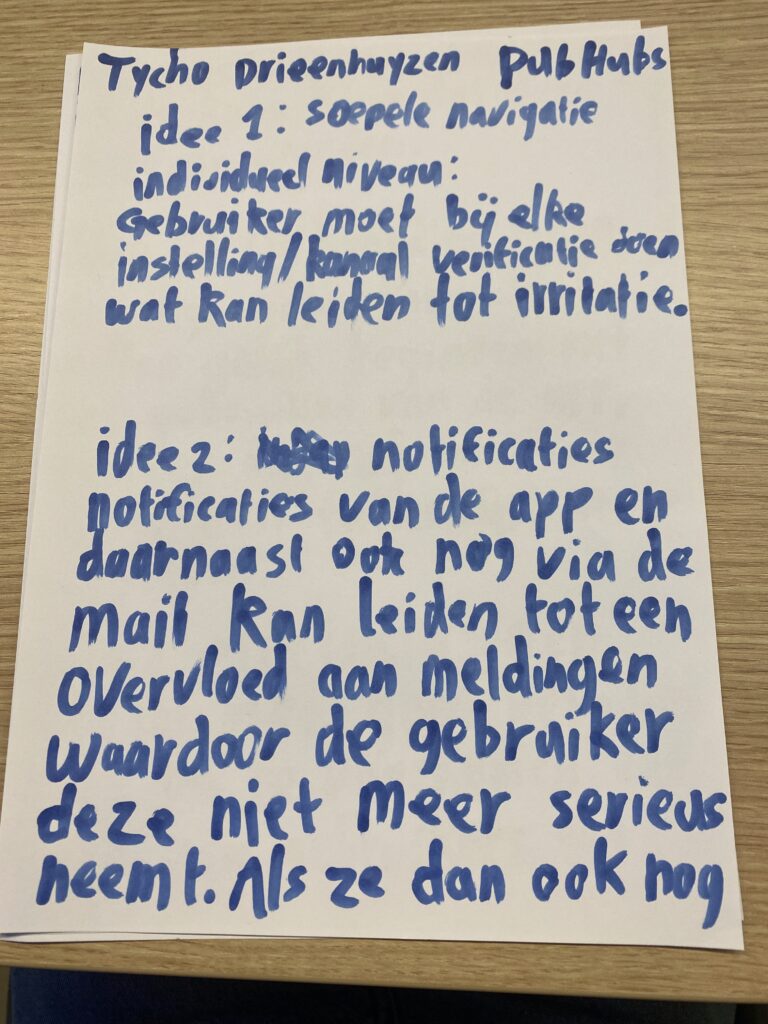 Tycho Drieenhuyzen PubHubs
idee 1: soepele navigatie
individueel niveau:
Gebruiker moet bij elke
instelling/kanaal verificatie doen
wat kan leiden tot irritatie.
idee 2: notificaties
notificaties van de app en
daarnaast ook nog via de
mail kan leiden tot een
overvloed aan meldingen
waardoor de gebruiker
deze niet meer serieus
neemt. Als ze dan ook nog